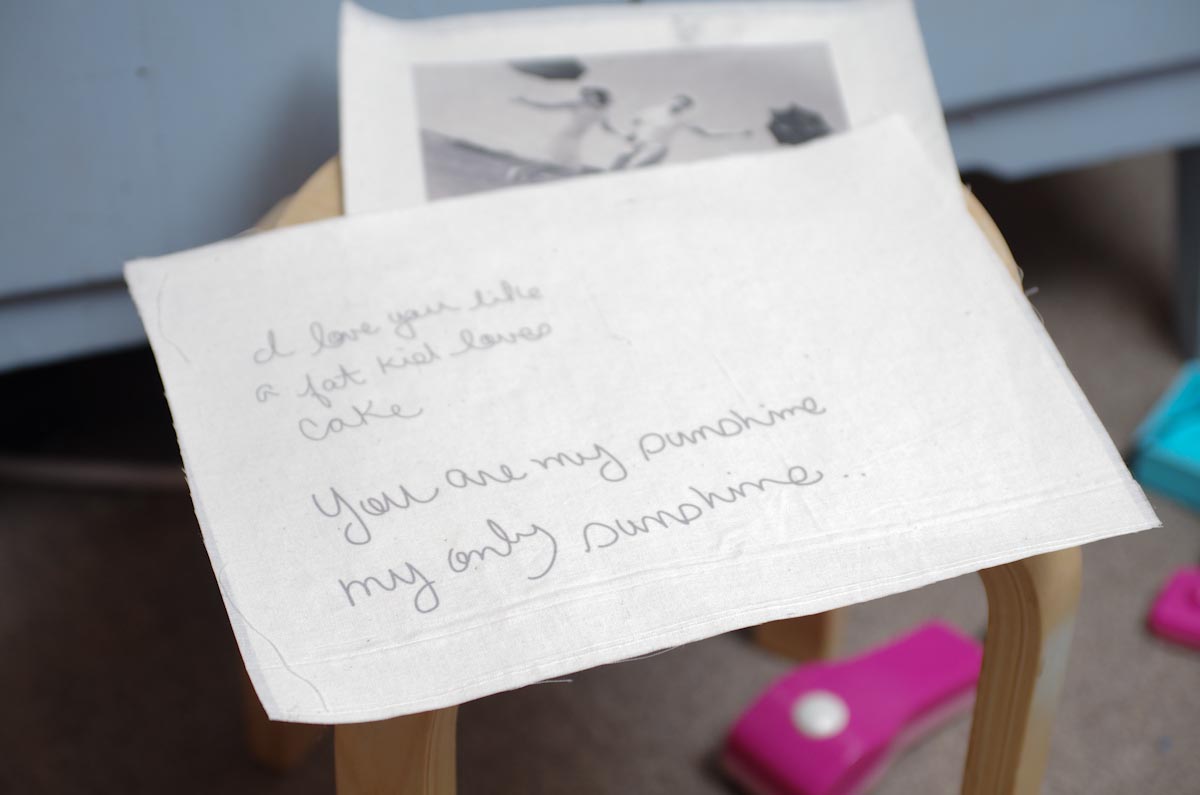 I love you like
a fat kid loves
cake
You are my sunshine
my only sunshine..